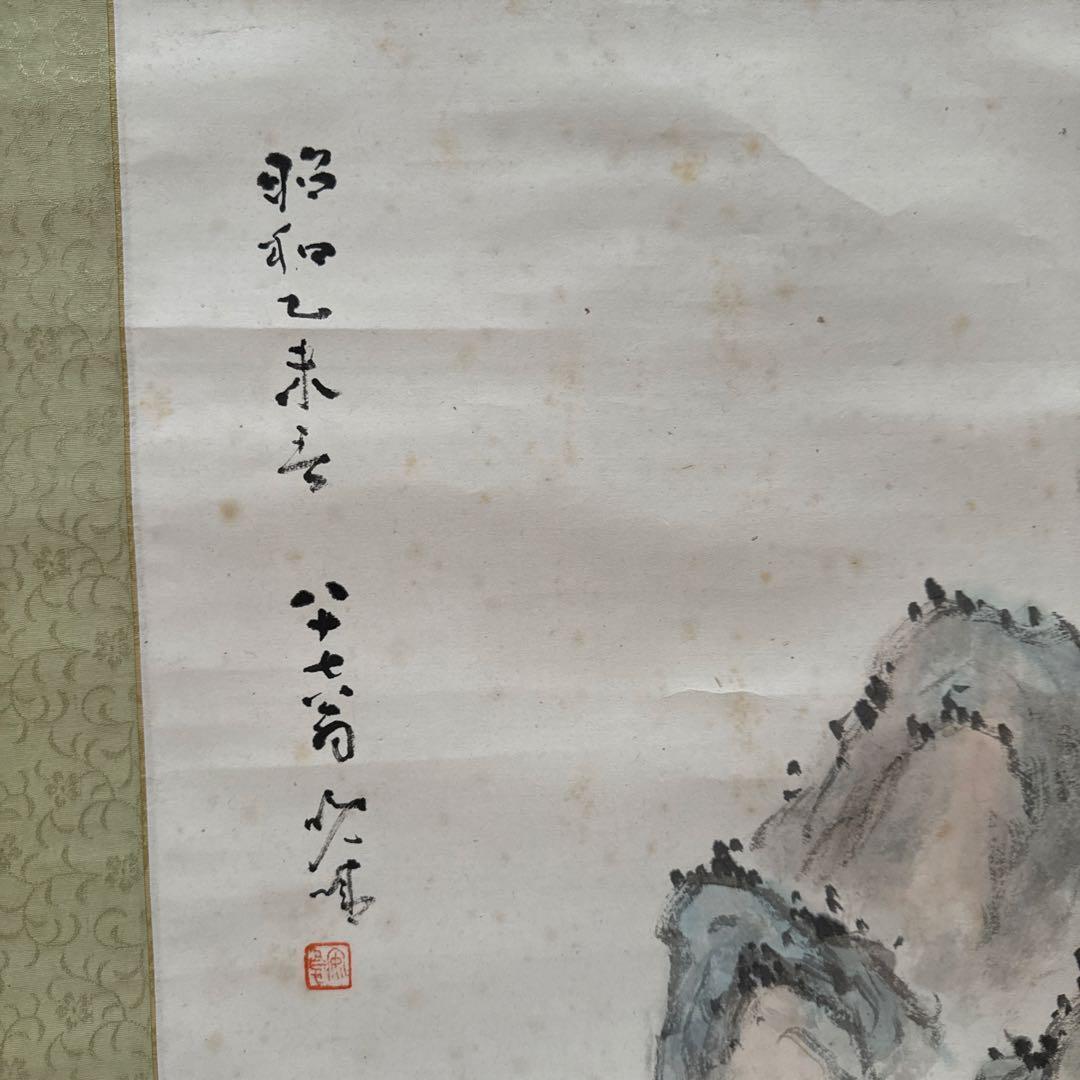 昭和乙未春 八十七翁